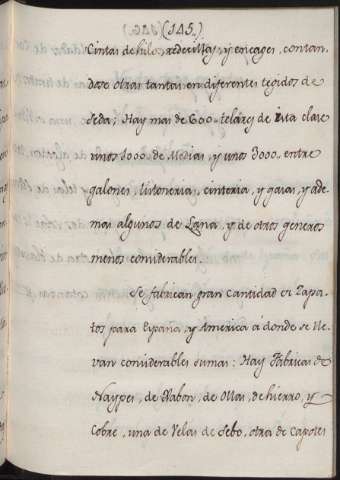 (145.)
Cintas de hilo, redecillas, y encages, contan-
dose otras tantas en diferentes tegidos de
seda; Hay mas de 600 telares de esta clase
unos 1000 de Medias, y unos 3000 entre
galones, listoneria, cinteria, y gasas, y ade-
mas algunos de Lana, y de otros generos
menos considerables.
Se fabrican gran cantidad de Zapa-
tos para España, y America á donde se lle-
van considerables sumas: Hay Fabricas de
Naypes, de Xabon, de Ollas, de hierro, y
Cobre, una de Velas de Sebo, otra de Capotes